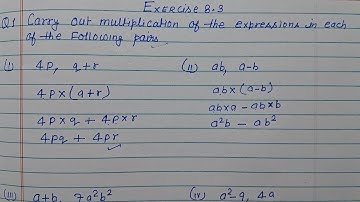 EXERCISE 8.3
Q1 Carry out multiplication of the expressions in each
of the following pairs
(i) 4p, q+r
4p×(q+r)
4p×q + 4p×r
4pq + 4pr
(ii) ab, a-b
ab×(a-b)
ab×a - ab×b
a²b - ab²
(iii) a+b, 7a²b²
(iv) a²-9, 4a